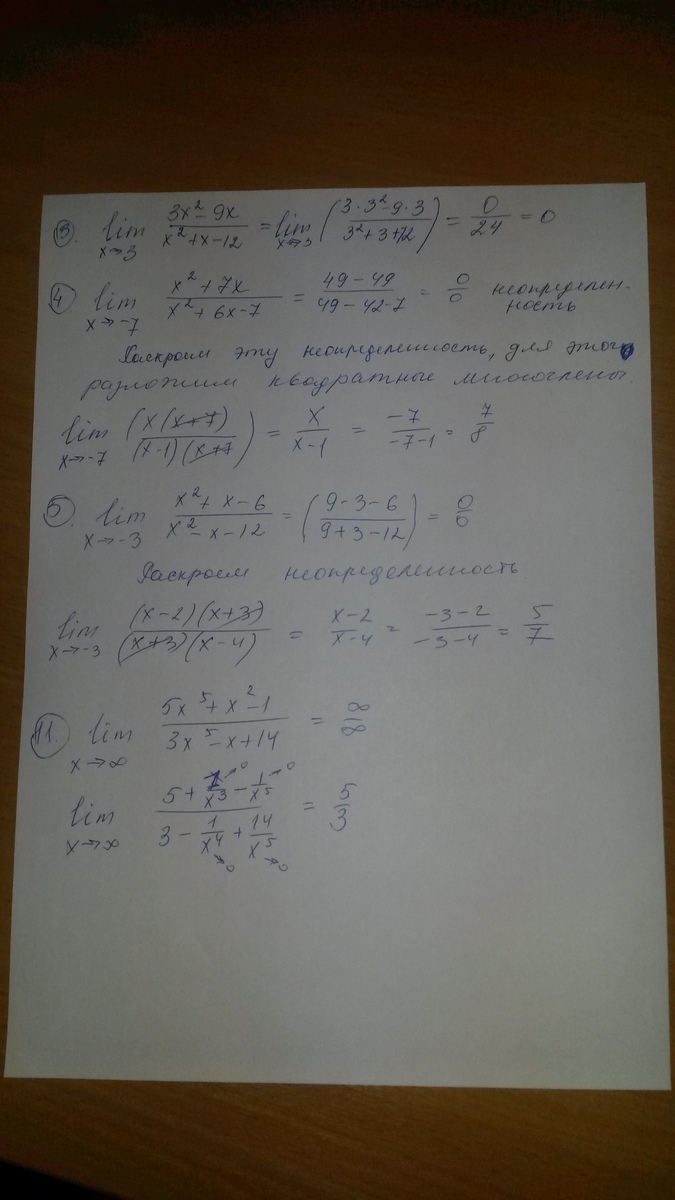 3. lim x→3 (3x² - 9x)/(x² + x - 12) = lim x→3 ((3·3² - 9·3)/(3² + 3 + 12)) = 0/24 = 0
4. lim x→-7 (x² + 7x)/(x² + 6x - 7) = (49 - 49)/(49 - 42 - 7) = 0/0 неопределен-
ность
Раскроем эту неопределенность, для этого
разложим квадратные многочлены
lim x→-7 ((x(x+7))/((x-1)(x+7))) = x/(x-1) = -7/(-7-1) = 7/8
5. lim x→-3 (x² + x - 6)/(x² - x - 12) = ((9 - 3 - 6)/(9 + 3 - 12)) = 0/0
Раскроем неопределенность
lim x→-3 ((x-2)(x+3))/((x+3)(x-4)) = (x-2)/(x-4) = (-3-2)/(-3-4) = 5/7
11. lim x→∞ (5x⁵ + x² - 1)/(3x⁵ - x + 14) = ∞/∞
lim x→∞ (5 + 1/x³→0 - 1/x⁵→0)/(3 - 1/x⁴→0 + 14/x⁵→0) = 5/3